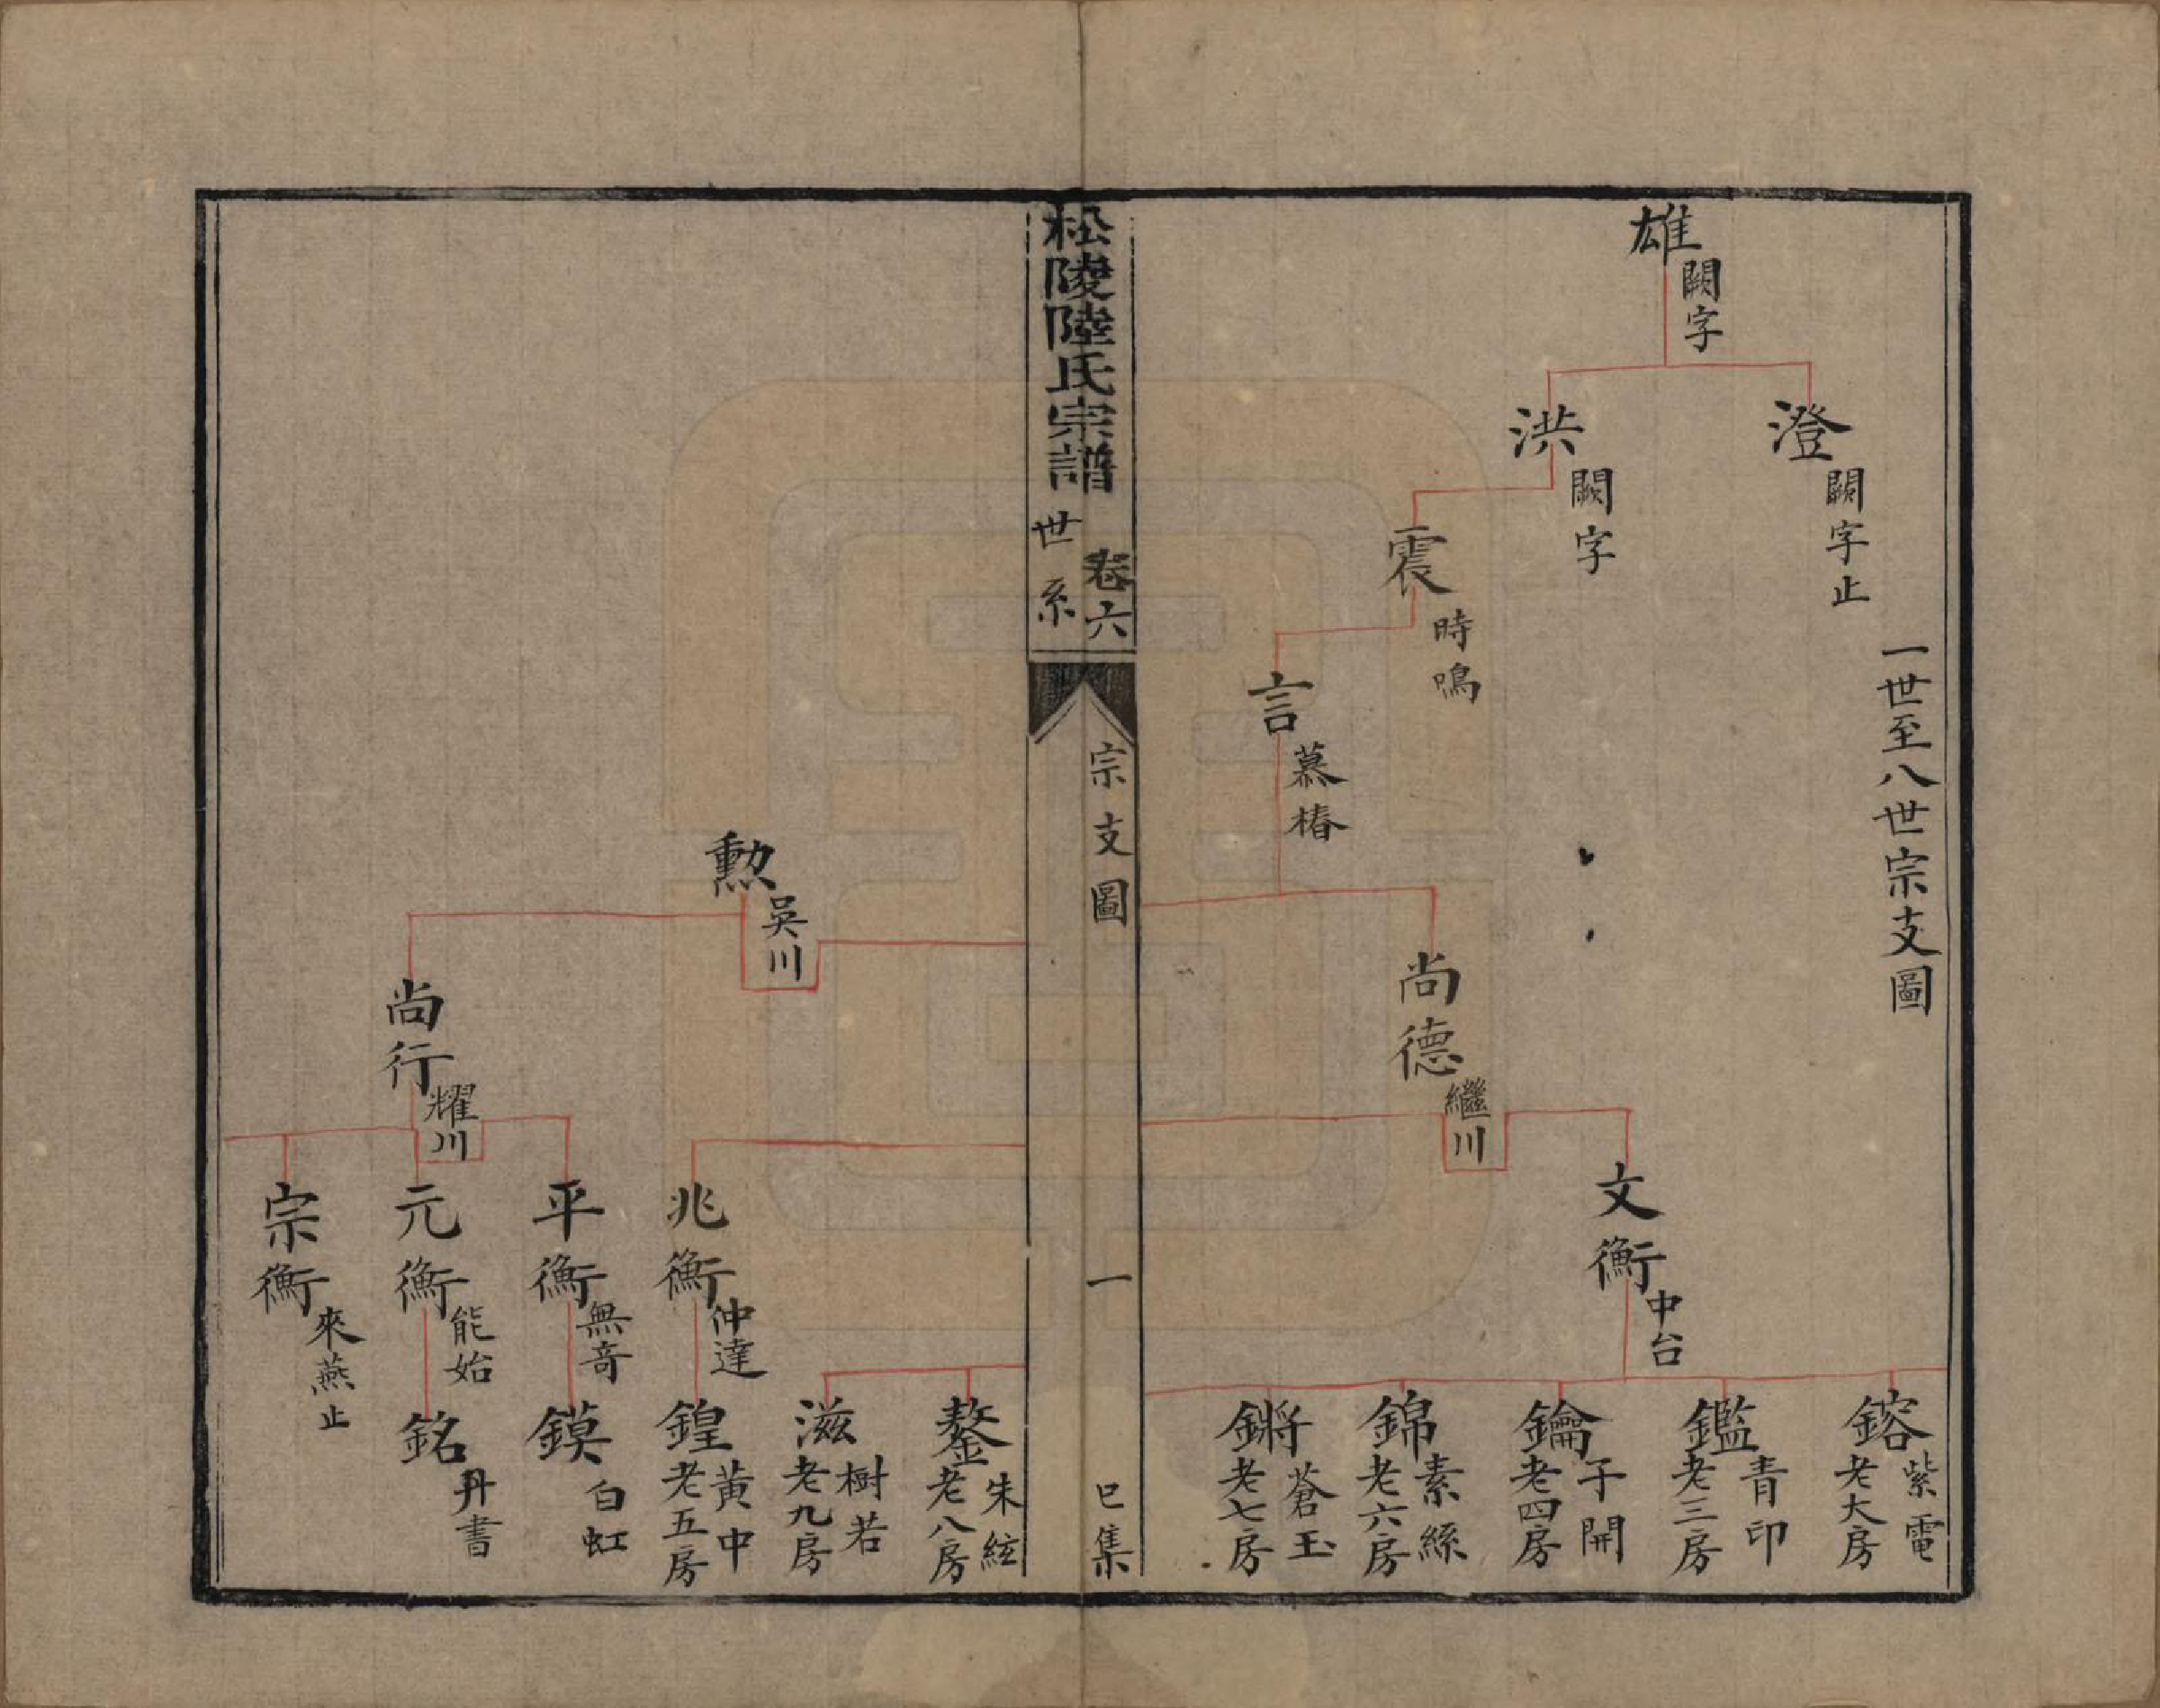 一世至八世宗支圖
雄
闕字
澄
闕字止
洪
闕字
震
時鳴
言
慕椿
尚德
繼川
文衡
中台
鎔
紫電
老大房
鑑
青印
老三房
鑰
子開
老四房
錦
素絲
老六房
鏘
蒼玉
老七房
松陵陸氏宗譜
卷六
世系
宗支圖
一
巳集
鏊
朱絃
老八房
滋
樹若
老九房
勲
吳川
兆衡
仲達
鍠
黃中
老五房
尚行
耀川
平衡
無奇
鏌
白虹
元衡
能始
銘
丹書
宗衡
來燕止